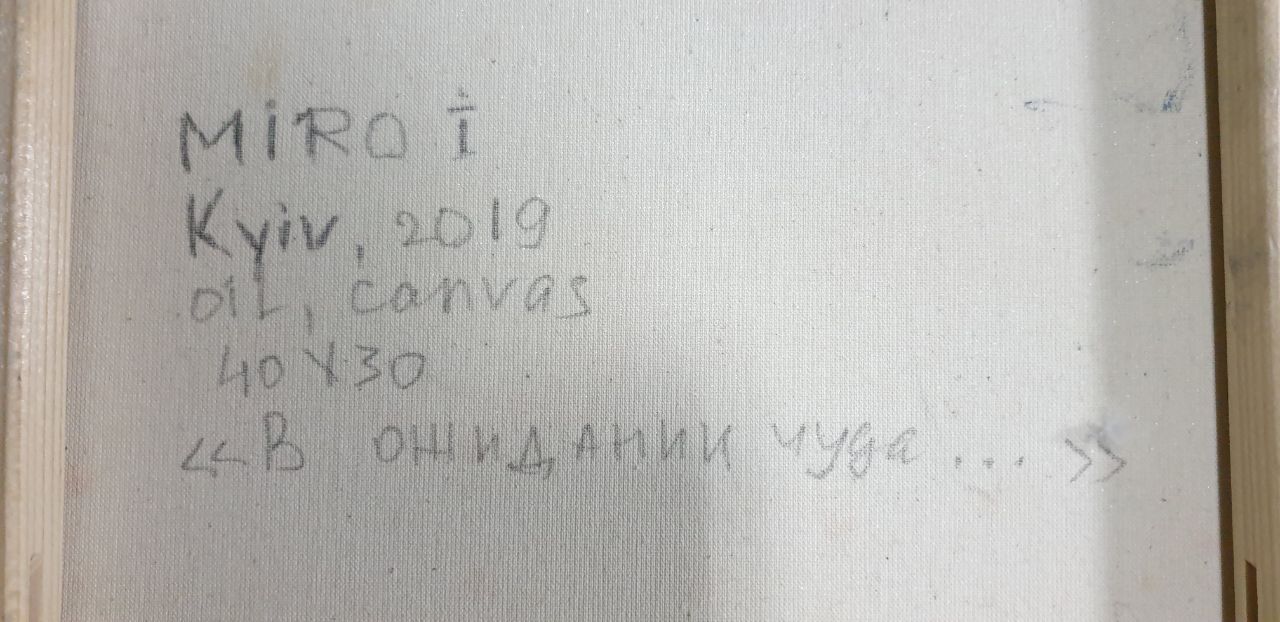 MiRO I
Kyiv, 2019
OIL, canvas
40X30
«В ожидании чуда...»